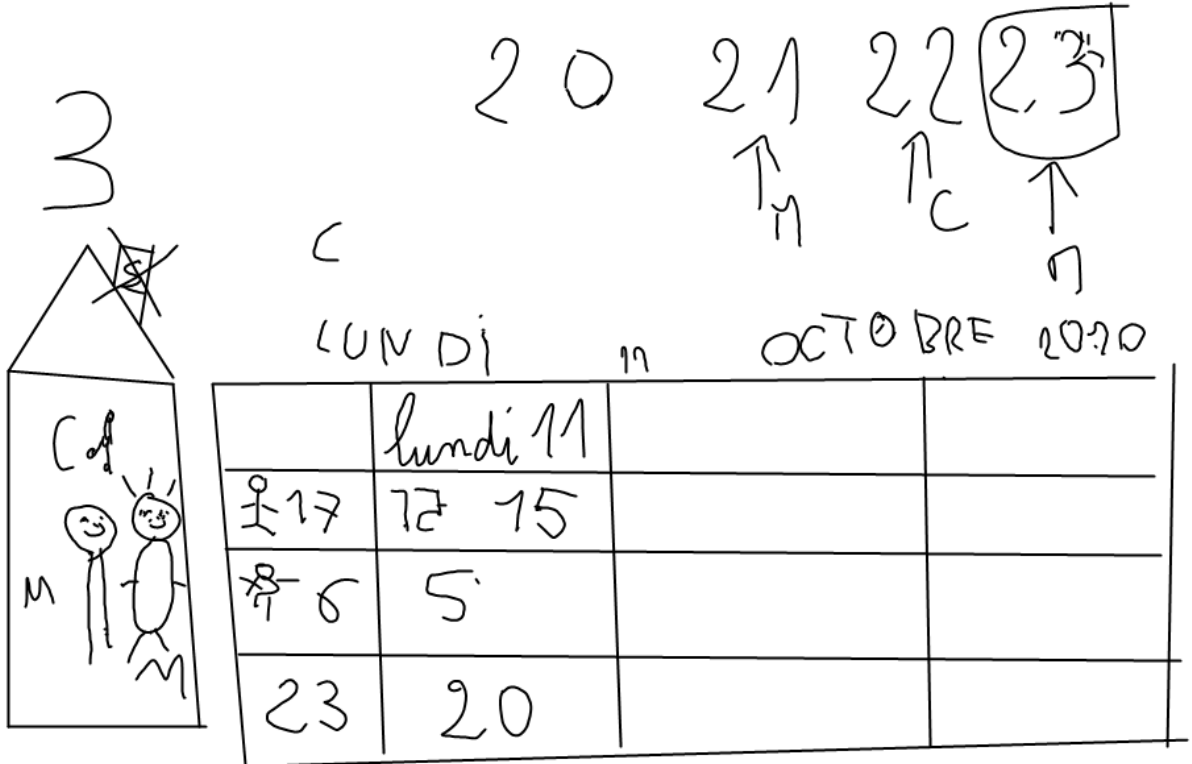 20 21 22 23
3
M C
C
LUNDI 11 OCTOBRE 2020
lundi 11
17 15
M
6 5
M
23 20